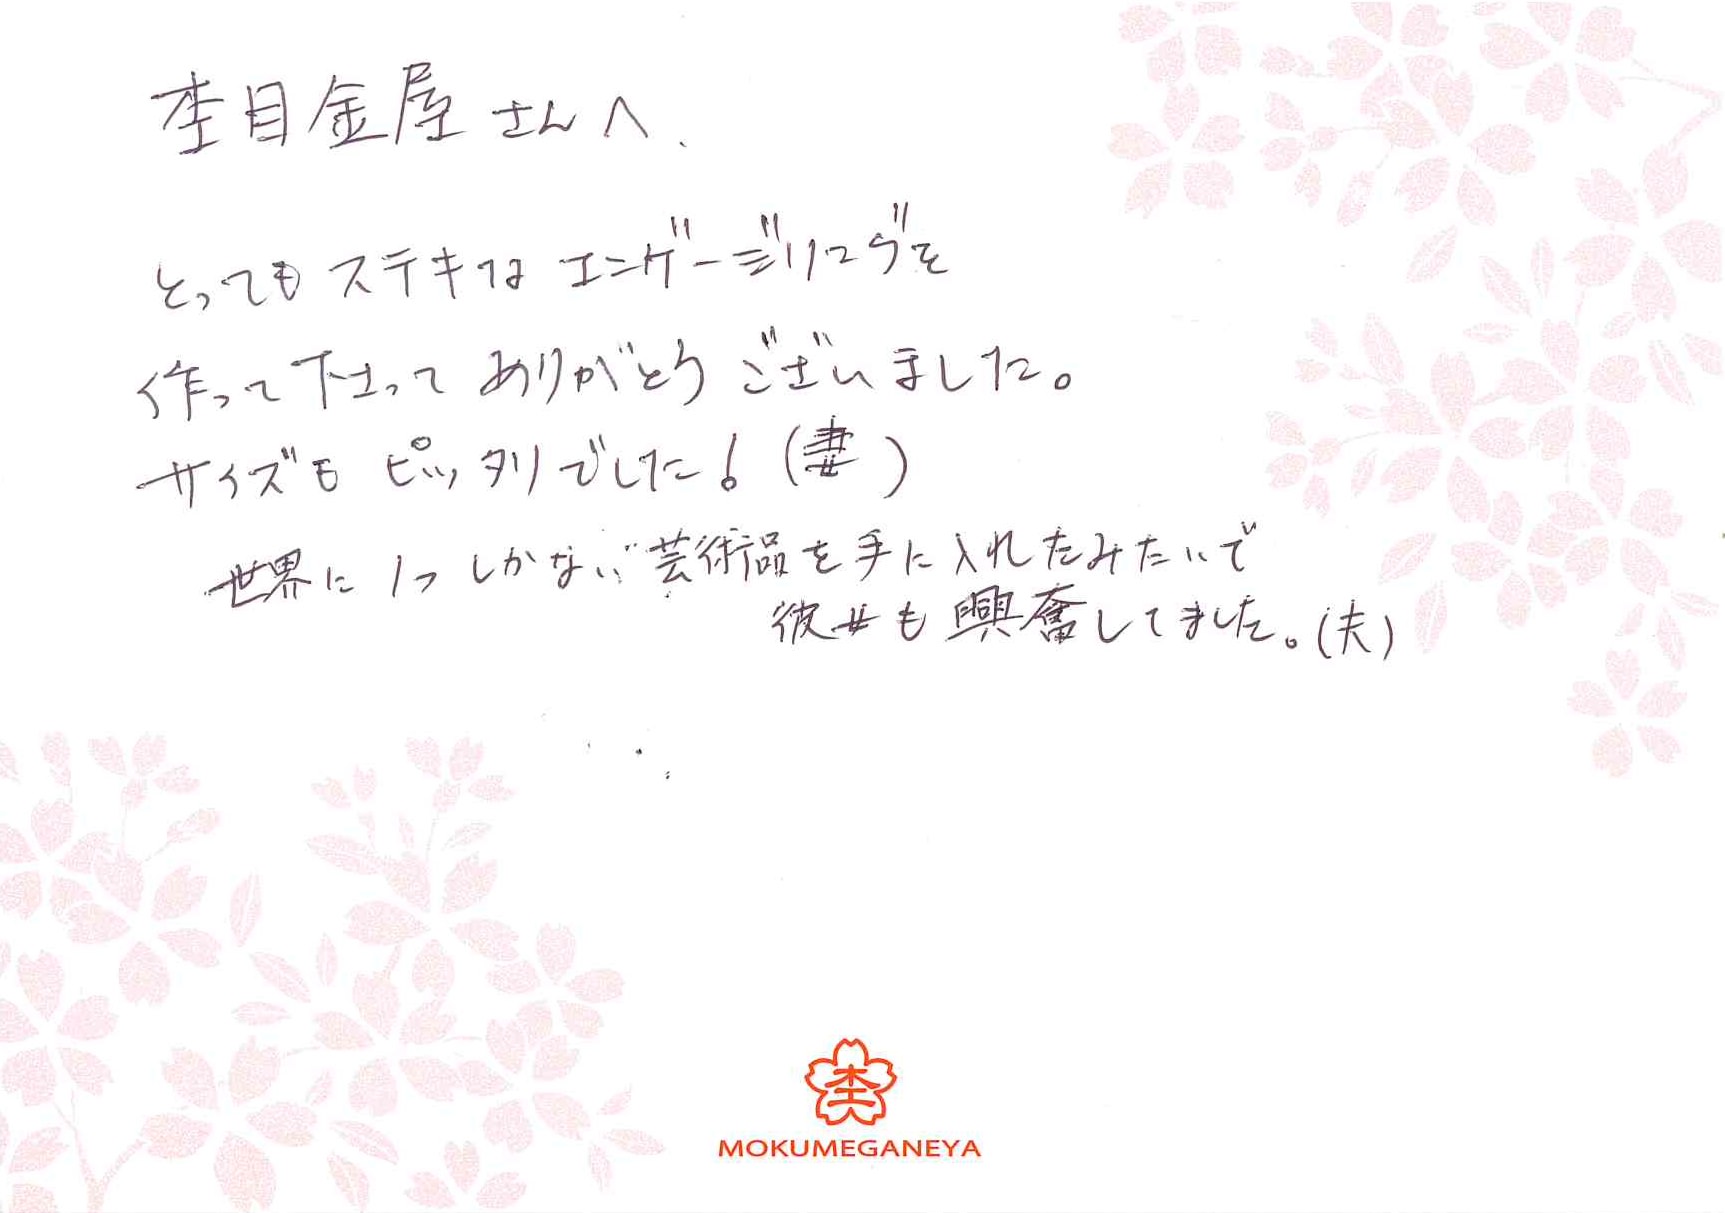 杢目金屋さんへ、
とってもステキなエンゲージリングを
作って下さってありがとうございました。
サイズもピッタリでした!(妻)
世界に1つしかない芸術品を手に入れたみたいで
彼女も興奮してました。(夫)
杢
MOKUMEGANEYA